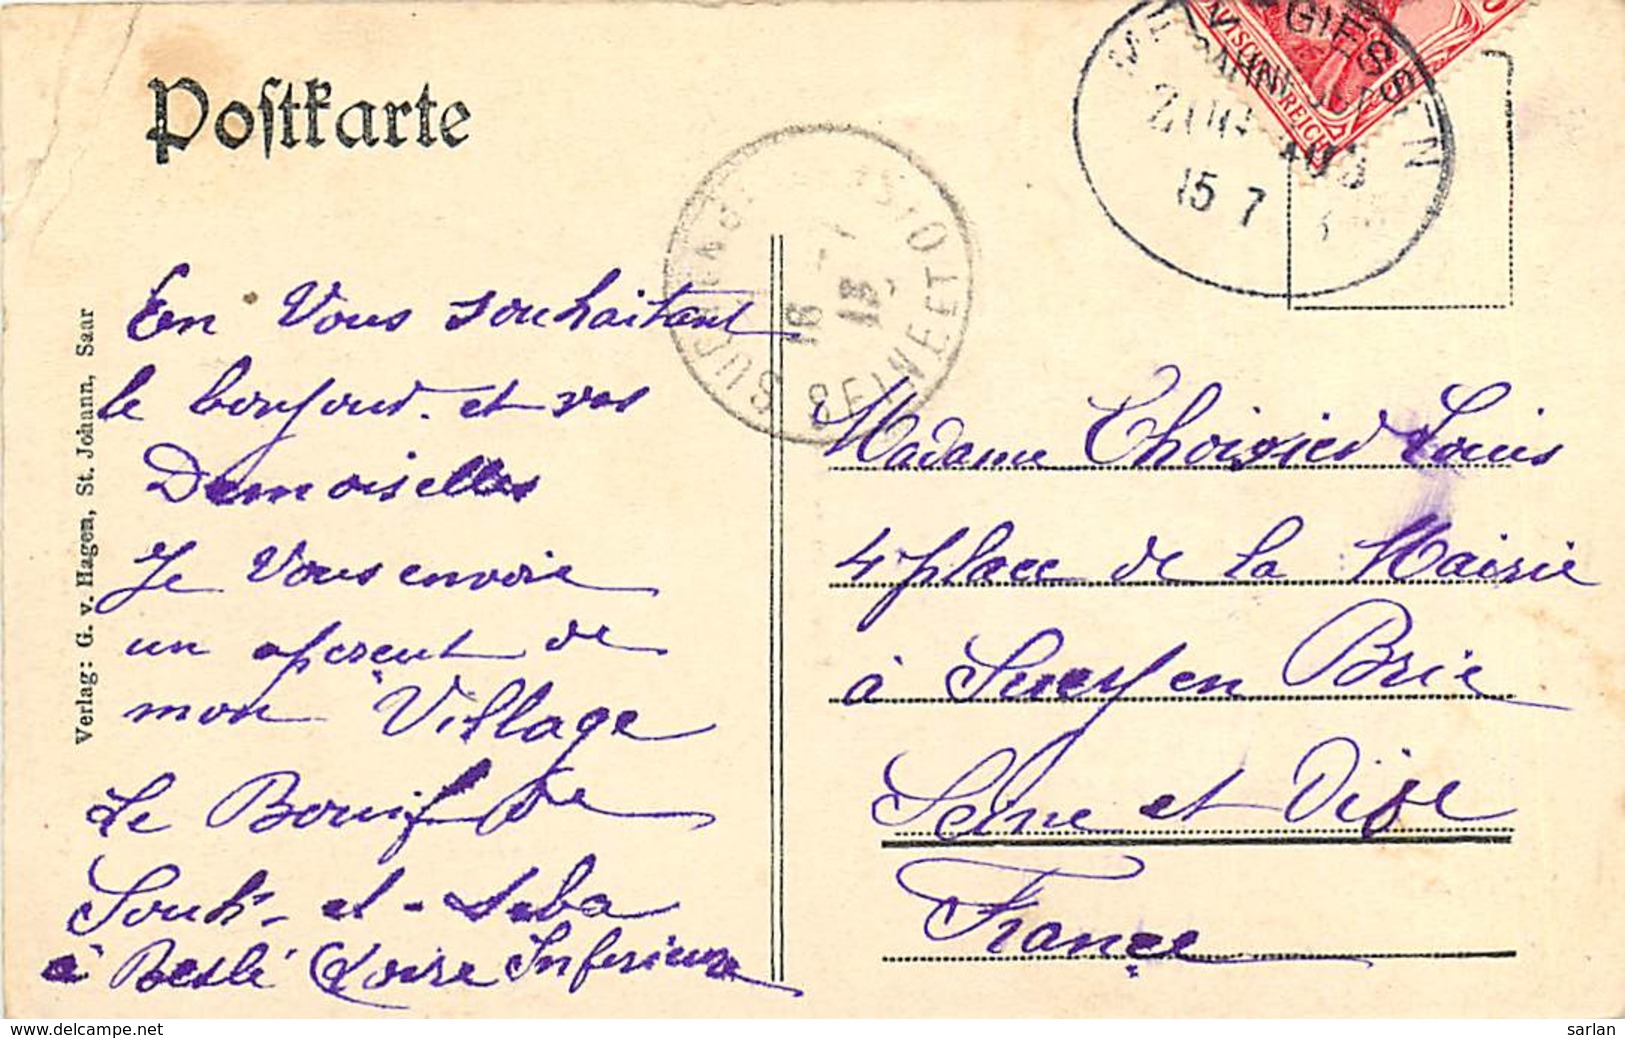 Postkarte
GIESSEN
BAHNPOST
ZUG
15 7
REICH
SEINE ET OISE
16 - 7
13
En Vous souhaitant
le bonjour. et vos
Demoiselles
Je Vous envoie
un aperçeut de
mon Village
Le Bouif de
Souk-el-
à Beslé Loire Inferieure
Verlag: G. v. Hagen, St. Johann, Saar
Madame Choisier Louis
4 place de la Mairie
à Sucy en Brie
Seine et Oise
France
www.delcampe.net
sarlan